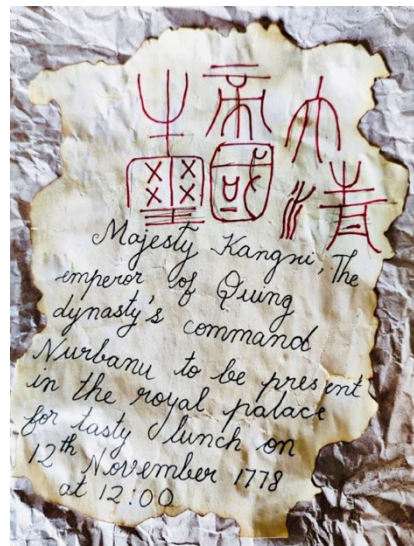 大清
帝國
之璽
Majesty Kangni, The
emperor of Quing
dynasty's command
Nurbanu to be present
in the royal palace
for tasty lunch on
12th November 1778
at 12:00